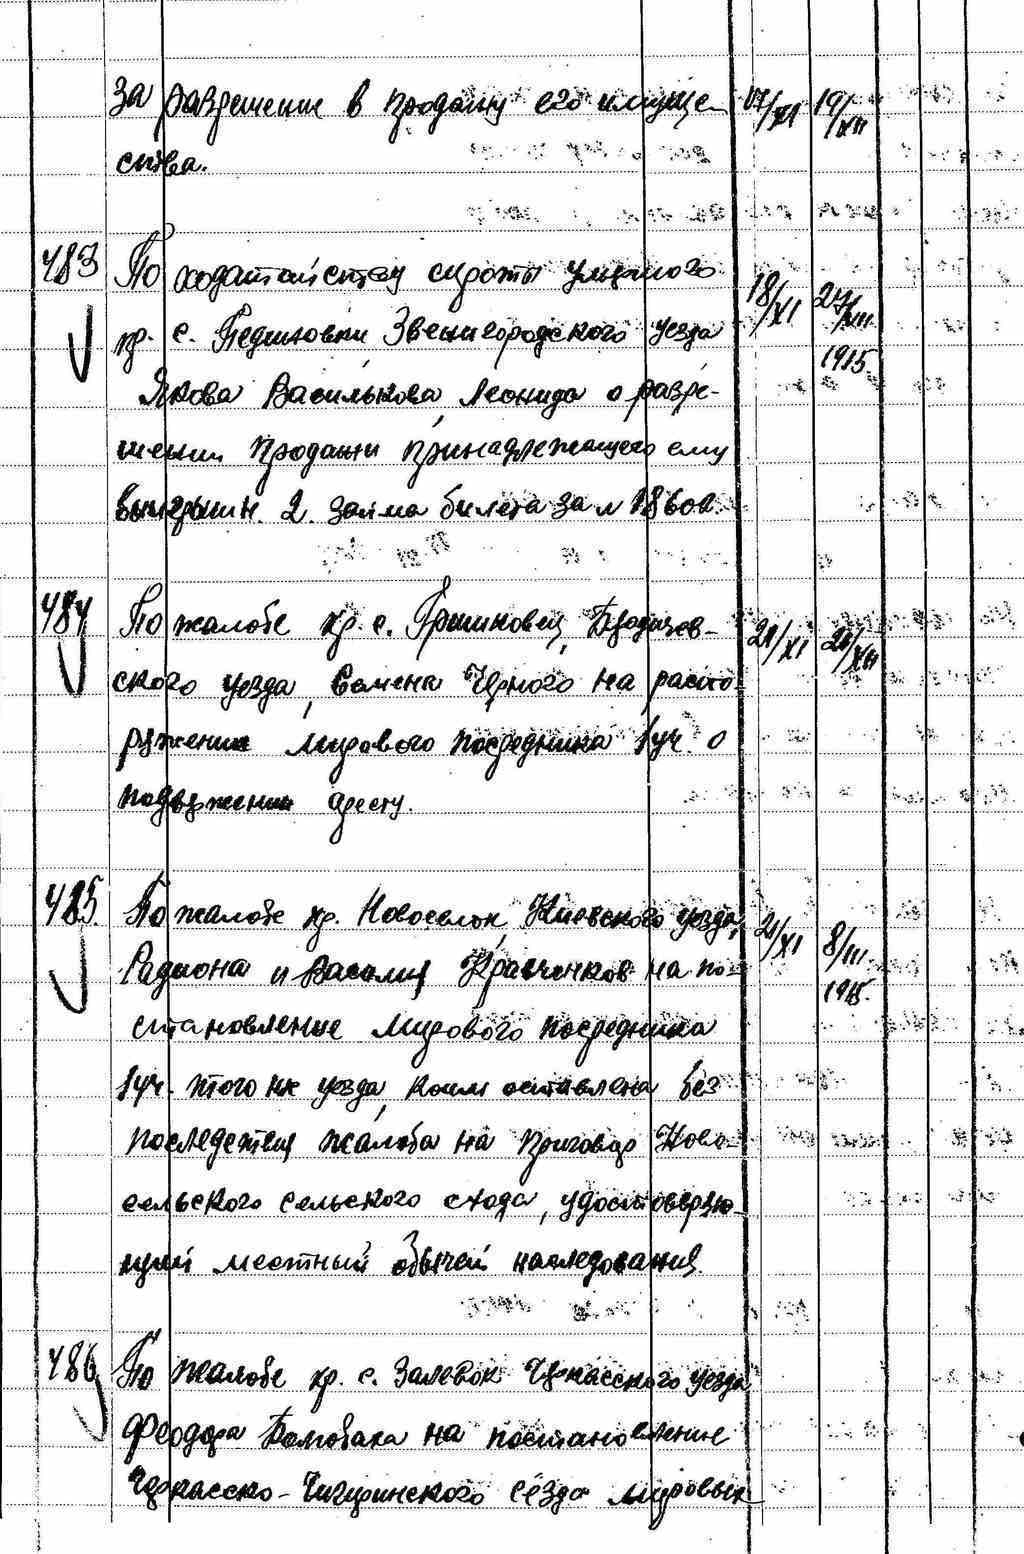 за разрешение в продажу его имуще- 17/XI 19/XII
ства.
483 По ходатайству сироты умершего
кр. с. Пединовки Звенигородского уезда 18/XI 27/XIII
1915
Якова Василькова Леонида о разре-
шении продажи принадлежащего ему
выигрышн. 2. займа билета за № 18600.
484 По жалобе кр. с. Гришковец, Бердичев-
ского уезда, Семена Черного на распо 21/XI 21/XII
ряжение мирового посредника 1 уч о
подвержении аресту.
485. По жалобе кр. Новоселок, Киевского уезда, 21/XI 8/III
1915.
Радиона и Василия Кравченков на по-
становление мирового посредника
1 уч. того же уезда, коим оставлена без
последствия жалоба на приговор Ново-
сельского сельского схода, удостоверяю-
щий местный обычай наследования.
486 По жалобе кр. с. Залевок Черкасского уезда
Феодора на постановление
Черкасско-Чигиринского съезда мировых